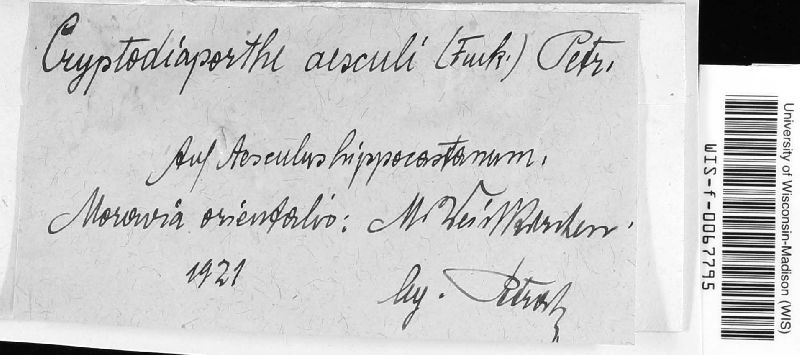 Cryptodiaporthe aesculi (Fuck.) Petr.
Auf Aesculus hippocastanum.
Moravia orientalis: M. Weisskirchen.
1921
lg. Petrak
University of Wisconsin-Madison (WIS)
WIS-f-0067795